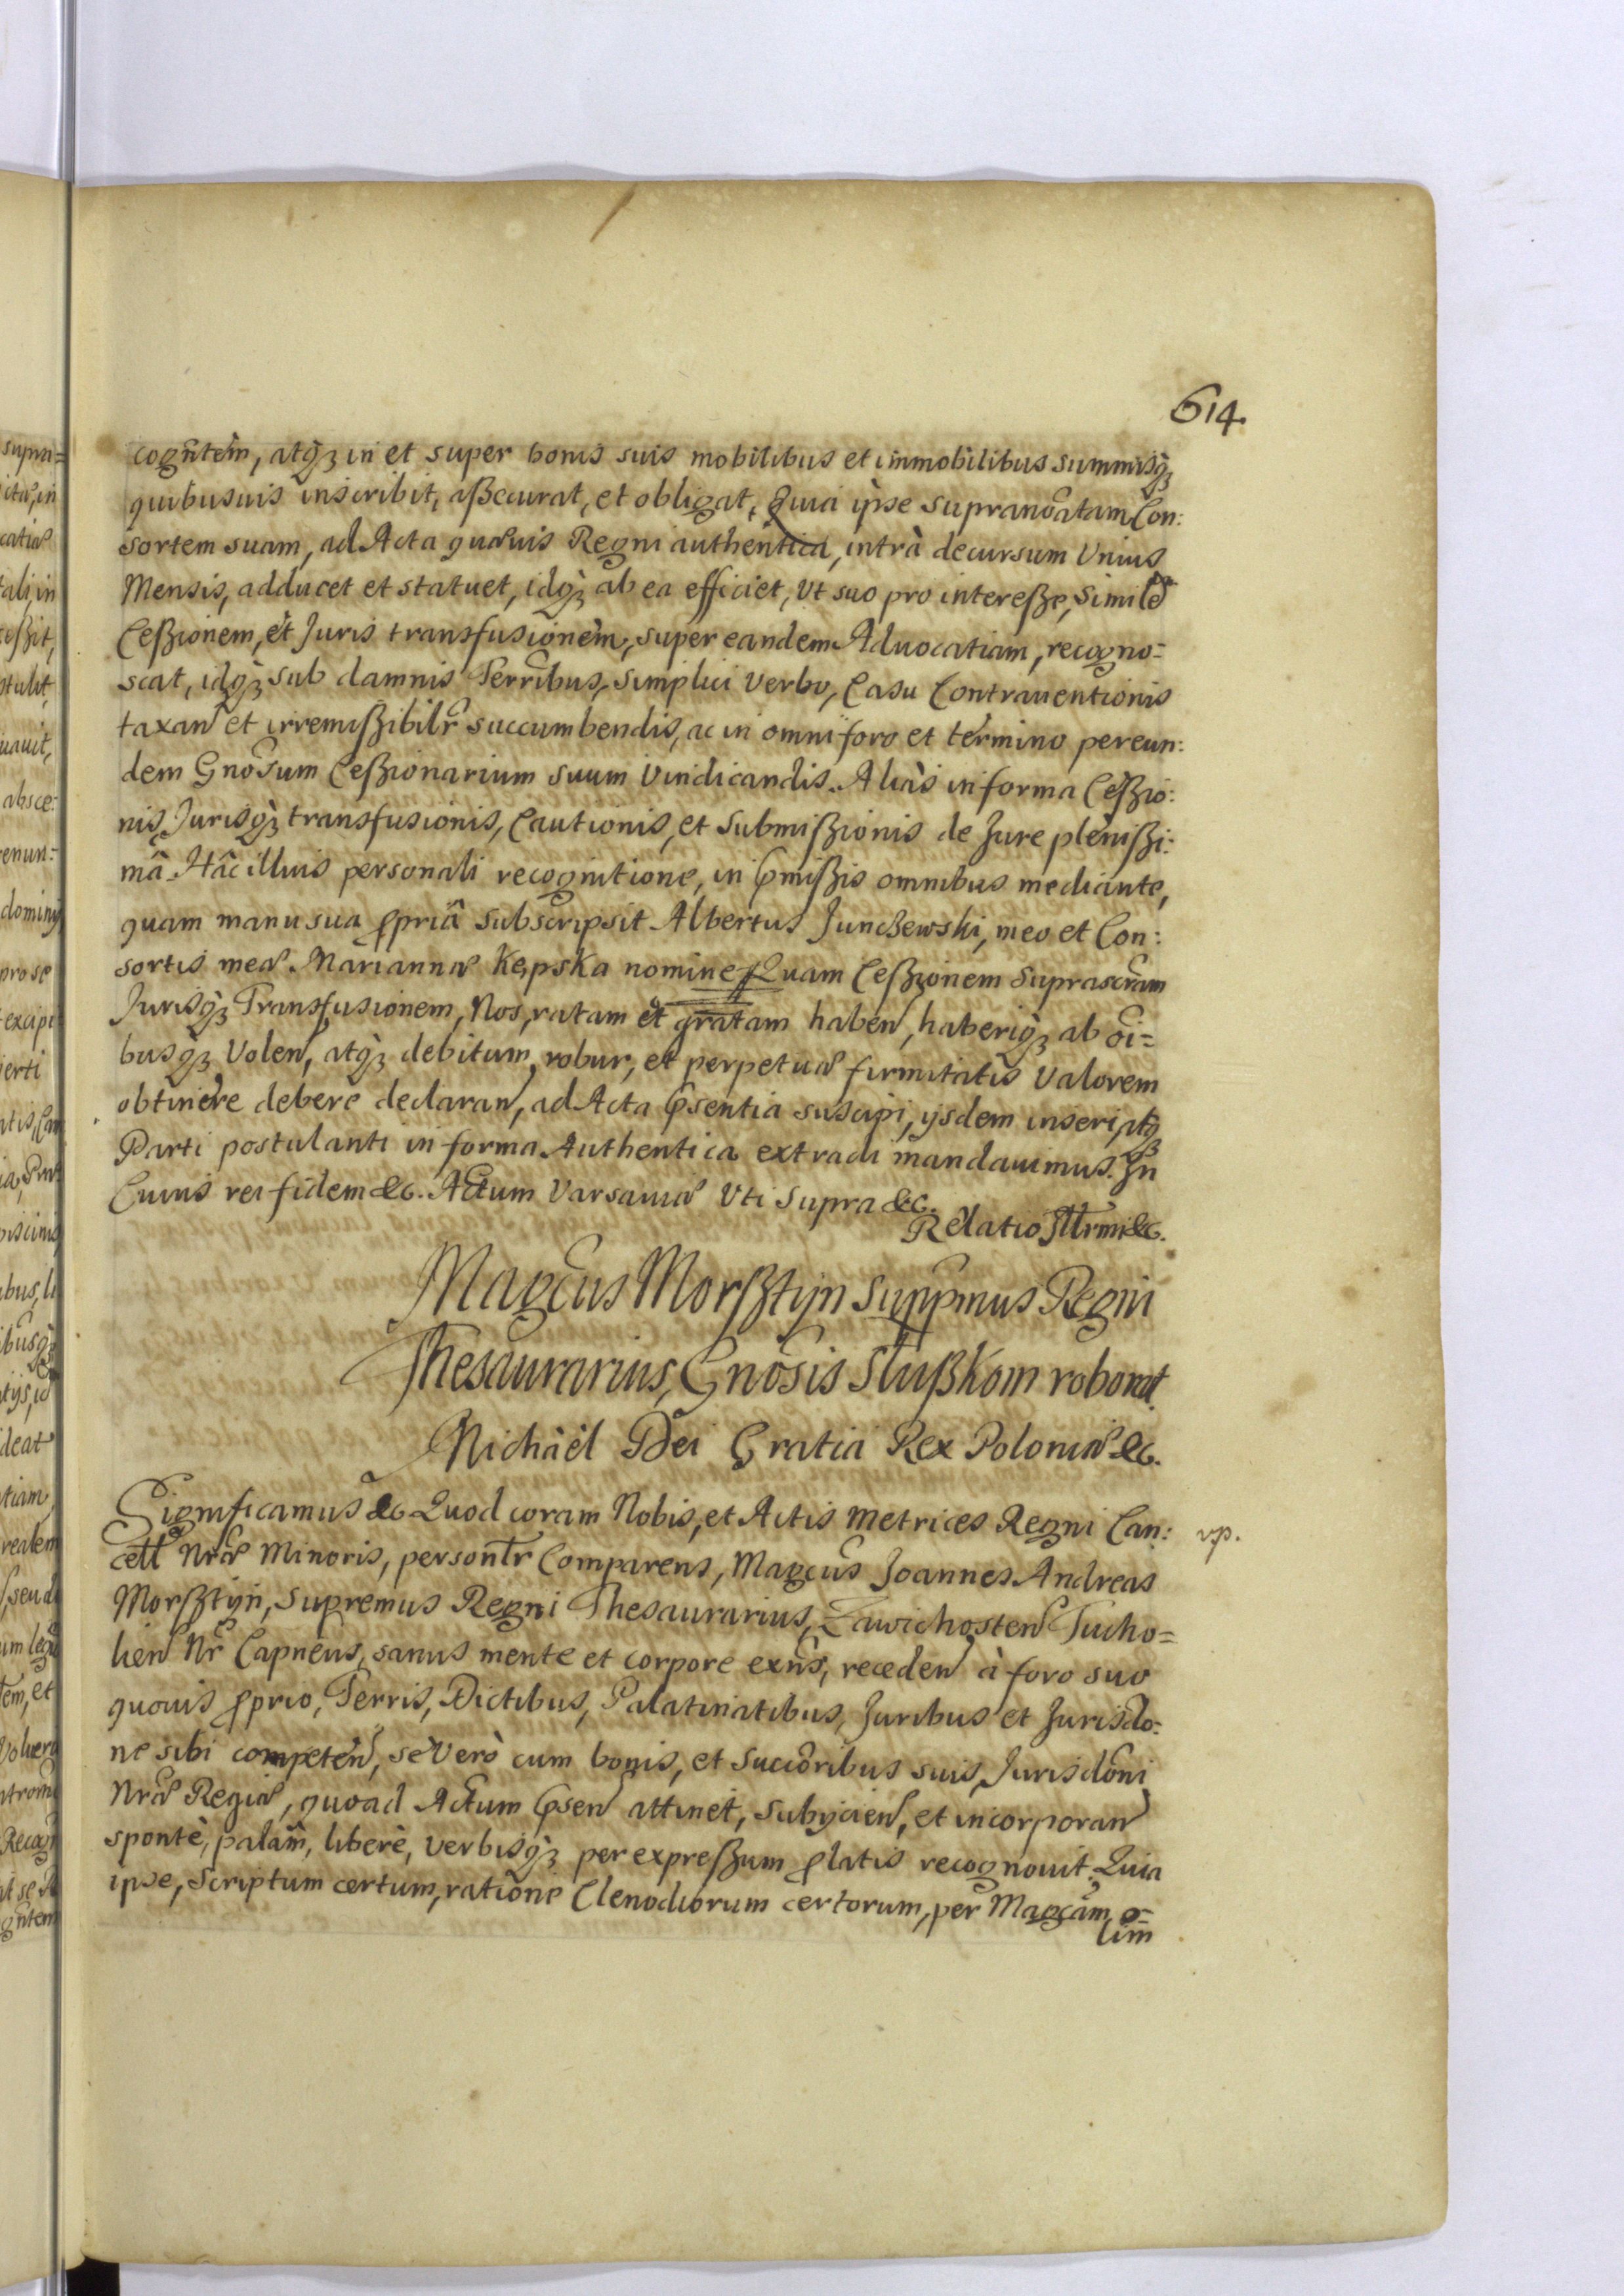 614.
cogñtem, atqȝ in et super bonis suis mobilibus et immobilibus summisqȝ
quibusuis inscribit, aßecurat, et obligat, Quia ipse supranoātam Con:
sortem suam, ad Acta quæuis Regni authentica, intrà decursum Unius
Mensis, adducet et statuet, idqȝ ab ea efficiet, Vt suo pro intereße, Similē
Ceßionem, et Juris transfusionem, super eandem Aduocatiam, recogno=
scat, idqȝ sub damnis Terrībus, Simplici Verbo, Casu Contrauentionis
taxan̄ et irremißibilr̄ succumbendis, ac in omni foro et termino per eun:
dem Gnōsum Ceßionarium suum Vindicandis. Aliàs in forma Ceßio:
nis, Jurisqȝ transfusionis, Cautionis, et Submißionis de Jure plenißi:
mâ. Hâc illius personali recognitione, in p̄mißis omnibus mediante,
quam manu sua ꝓpriâ Subscripsit Albertus Junczewski, meo et Con:
sortis meæ. Mariannæ Kępska nomine Quam Ceßionem Suprascr̄am
Jurisqȝ Transfusionem, Nos, ratam et gratam haben̄, haberiqȝ ab oī=
busqȝ Volen̄, atqȝ debitum, robur, et perpetuæ firmitatis Valorem
obtinere debere declaran̄, ad Acta p̄sentia suscipi, ijsdem inseri, atqȝ
Parti postulanti in forma Authentica extradi mandauimus. In
Cuius rei fidem &c. Actum Varsauiæ Vti Supra &c.
Relatio Illr̄mi &c.
Magc̄us Morßtijn Supp̄mus Regni
Thesaurarius, Gnōsis Slußkom roborat.
Michäel Dei Gratia Rex Poloniæ &c.
Significamus &c Quod coram Nobis, et Actis Metrices Regni Can:
cell̄ Nr̄æ Minoris, personlr̄ Comparens, Magc̄us Joannes Andreas
vp.
Morßtijn, Supremus Regni Thesaurarius, Zawichosten̄ Tucho=
lien̄ Nr̄ Capneus, sanus mente et corpore exn̄s, receden̄ à foro suo
quouis ꝓprio, Terris, Dictibus, Palatinatibus, Juribus et Jurisdo:
ne sibi competen̄, se Verò cum bonis, et Succōribus suis, Jurisdōni
Nr̄æ Regiæ, quoad Actum p̄sen̄ attinet, Subijcien̄, et incorporan̄
spontè, palam̀, liberè, Verbisqȝ per expreßum ꝓlatis recognouit. Quia
ipse, Scriptum certum, ratione Clenodiorum certorum, per Magc̄am o=
lim